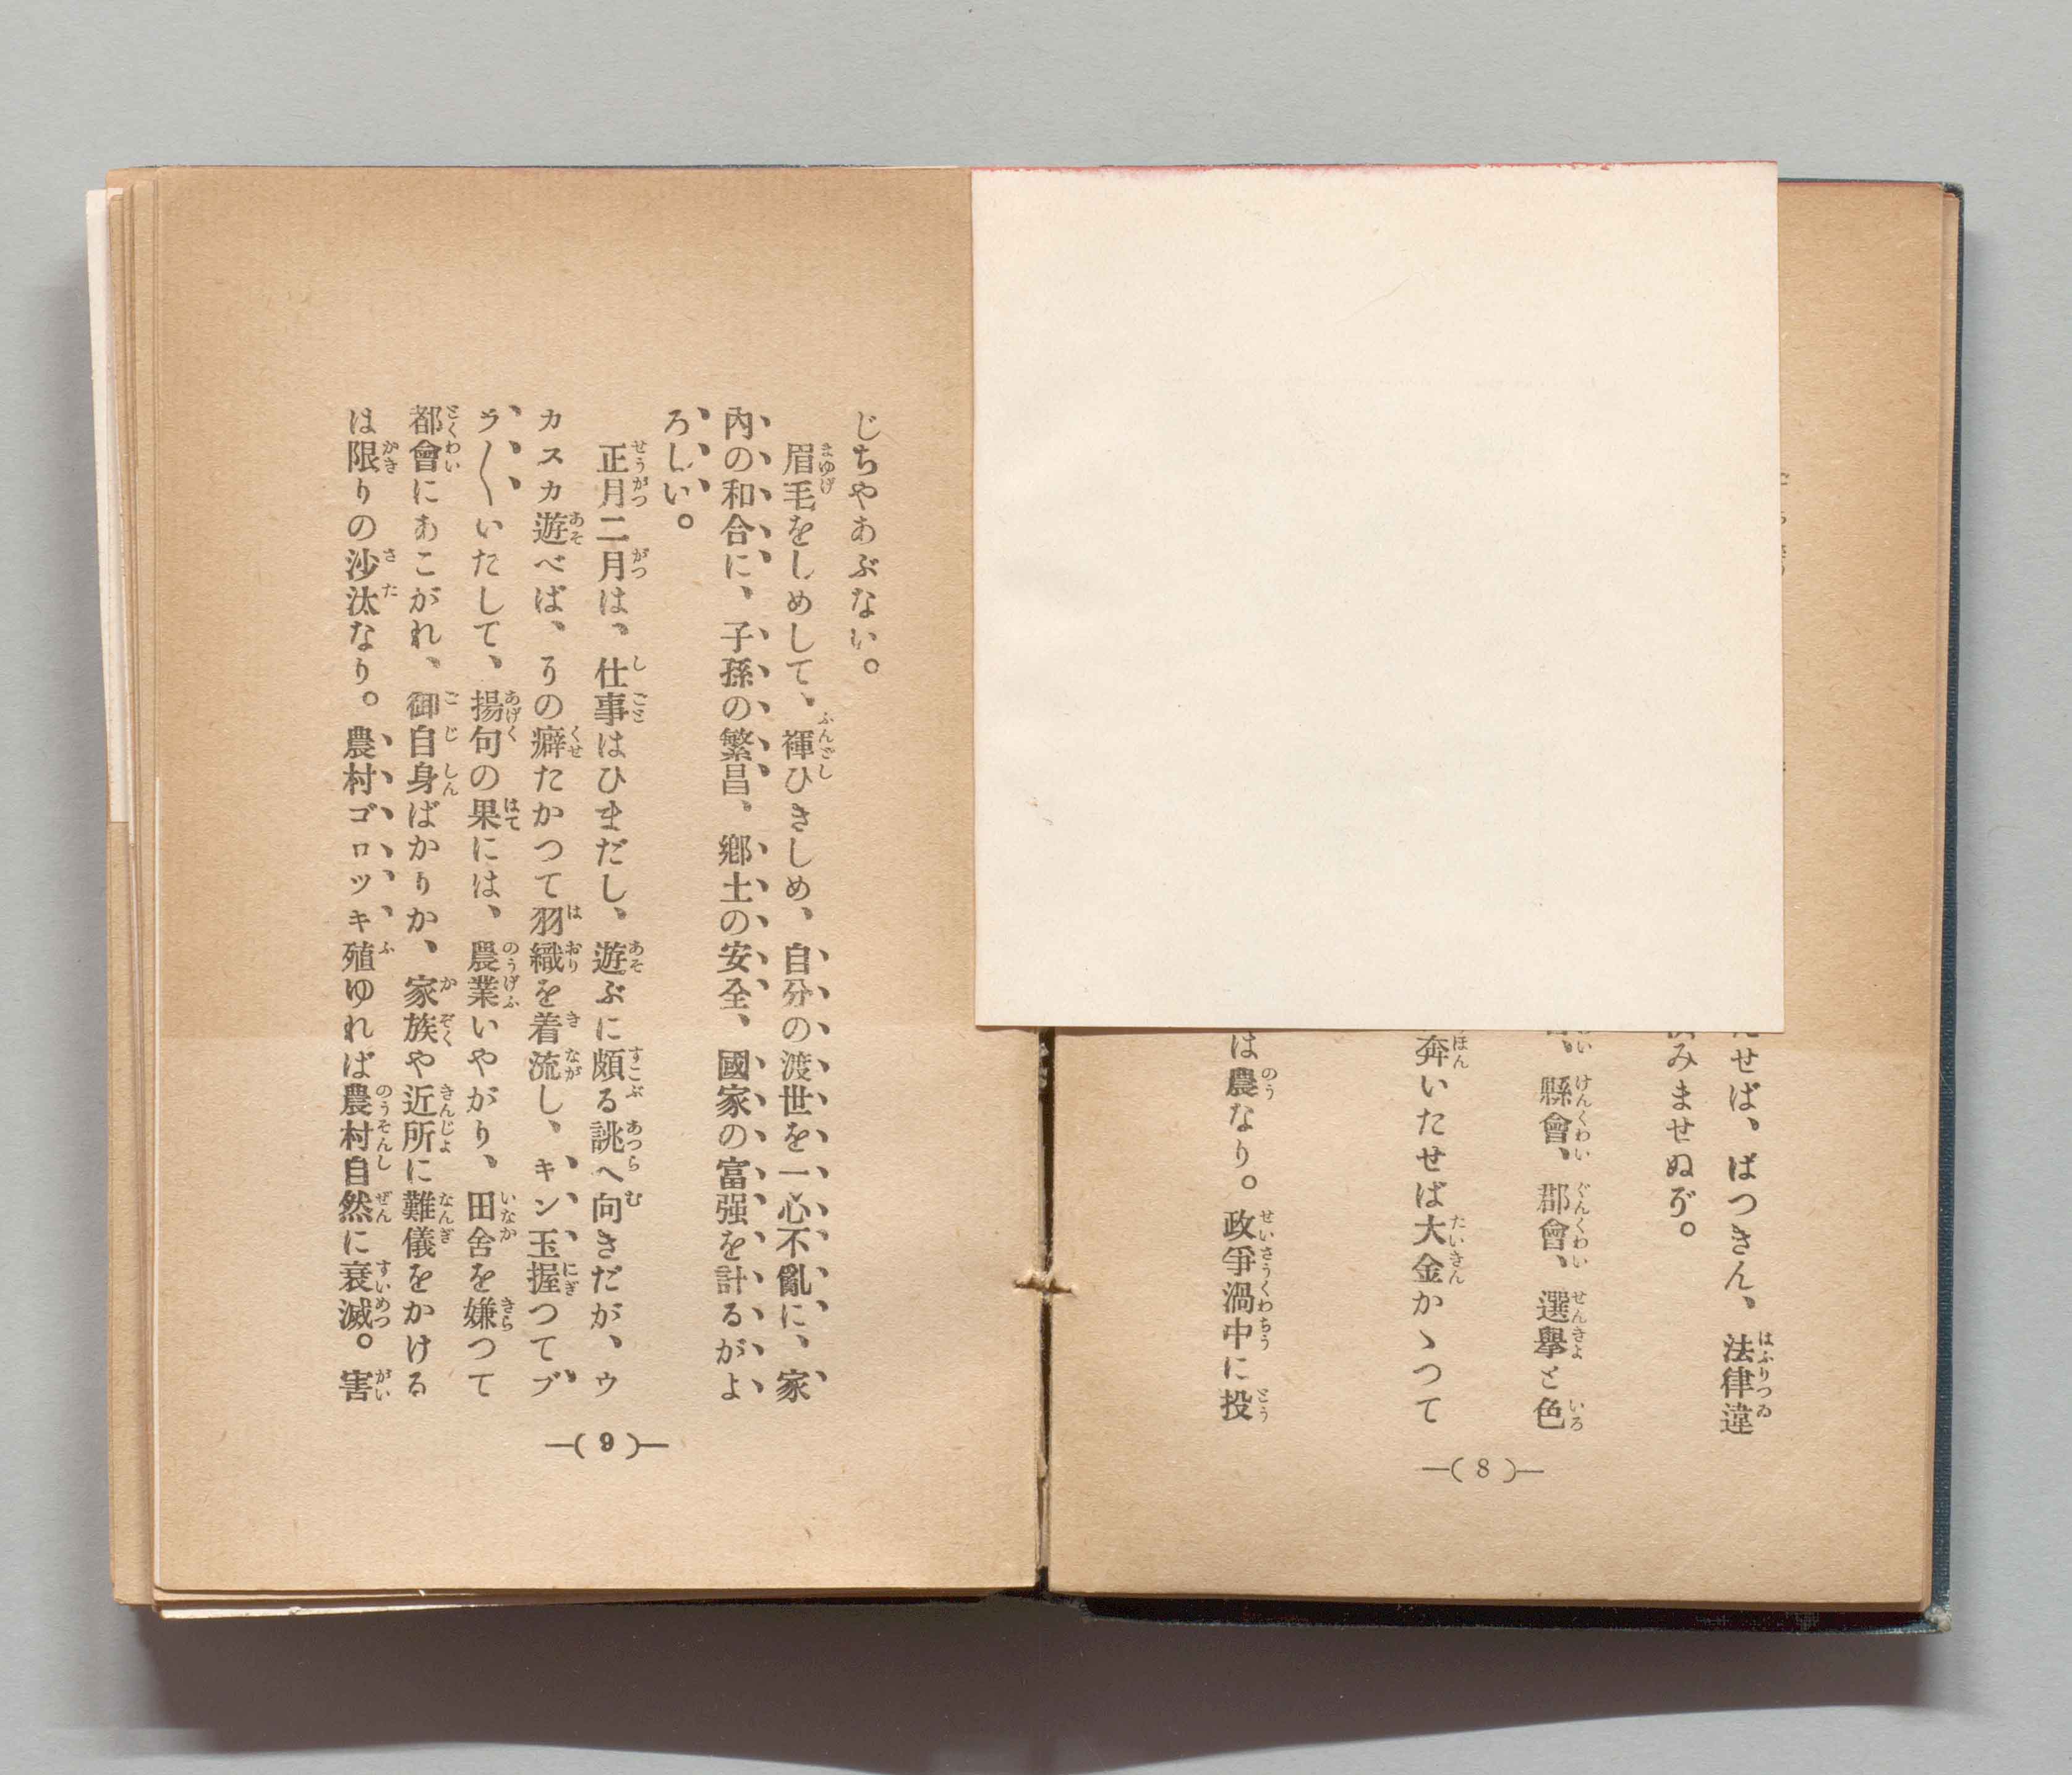 せば、ばつきん、法律違
みませぬぞ。
、縣會、郡會、選擧と色
奔いたせば大金かゝつて
は農なり。政爭渦中に投
—( 8 )—
じちやあぶない。
眉毛をしめして、褌ひきしめ、自分の渡世を一心不亂に、家
內の和合に、子孫の繁昌、鄕土の安全、國家の富强を計るがよ
ろしい。
正月二月は、仕事はひまだし、遊ぶに頗る誂へ向きだが、ウ
カスカ遊べば、その癖たかつて羽織を着流し、キン玉握つてブ
ラ〱いたして、揚句の果には、農業いやがり、田舍を嫌つて
都會にあこがれ、御自身ばかりか、家族や近所に難儀をかける
は限りの沙汰なり。農村ゴロツキ殖ゆれば農村自然に衰滅。害
—( 9 )—